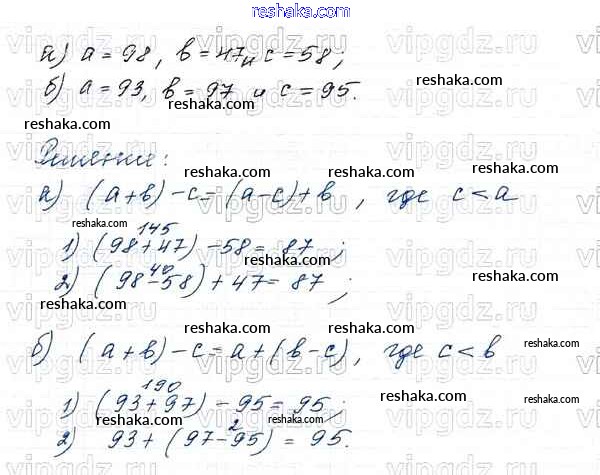 reshaka.com
а) a = 98, b = 47 и c = 58;
б) a = 93, b = 97 и c = 95.
reshaka.com reshaka.com
reshaka.com
Решение:
reshaka.com reshaka.com
а) (a+b)-c=(a-c)+b, где c<a
reshaka.com reshaka.com
145
1) (98+47)-58= 87;
40
2) (98-58)+47= 87;
reshaka.com reshaka.com
reshaka.com reshaka.com
б) (a+b)-c=a+(b-c), где c<b
reshaka.com
reshaka.com
190
1) (93+97)-95=95;
reshaka.com reshaka.com
2
2) 93+(97-95)=95.
reshaka.com reshaka.com
vipgdz.ru vipgdz.ru vipgdz.ru